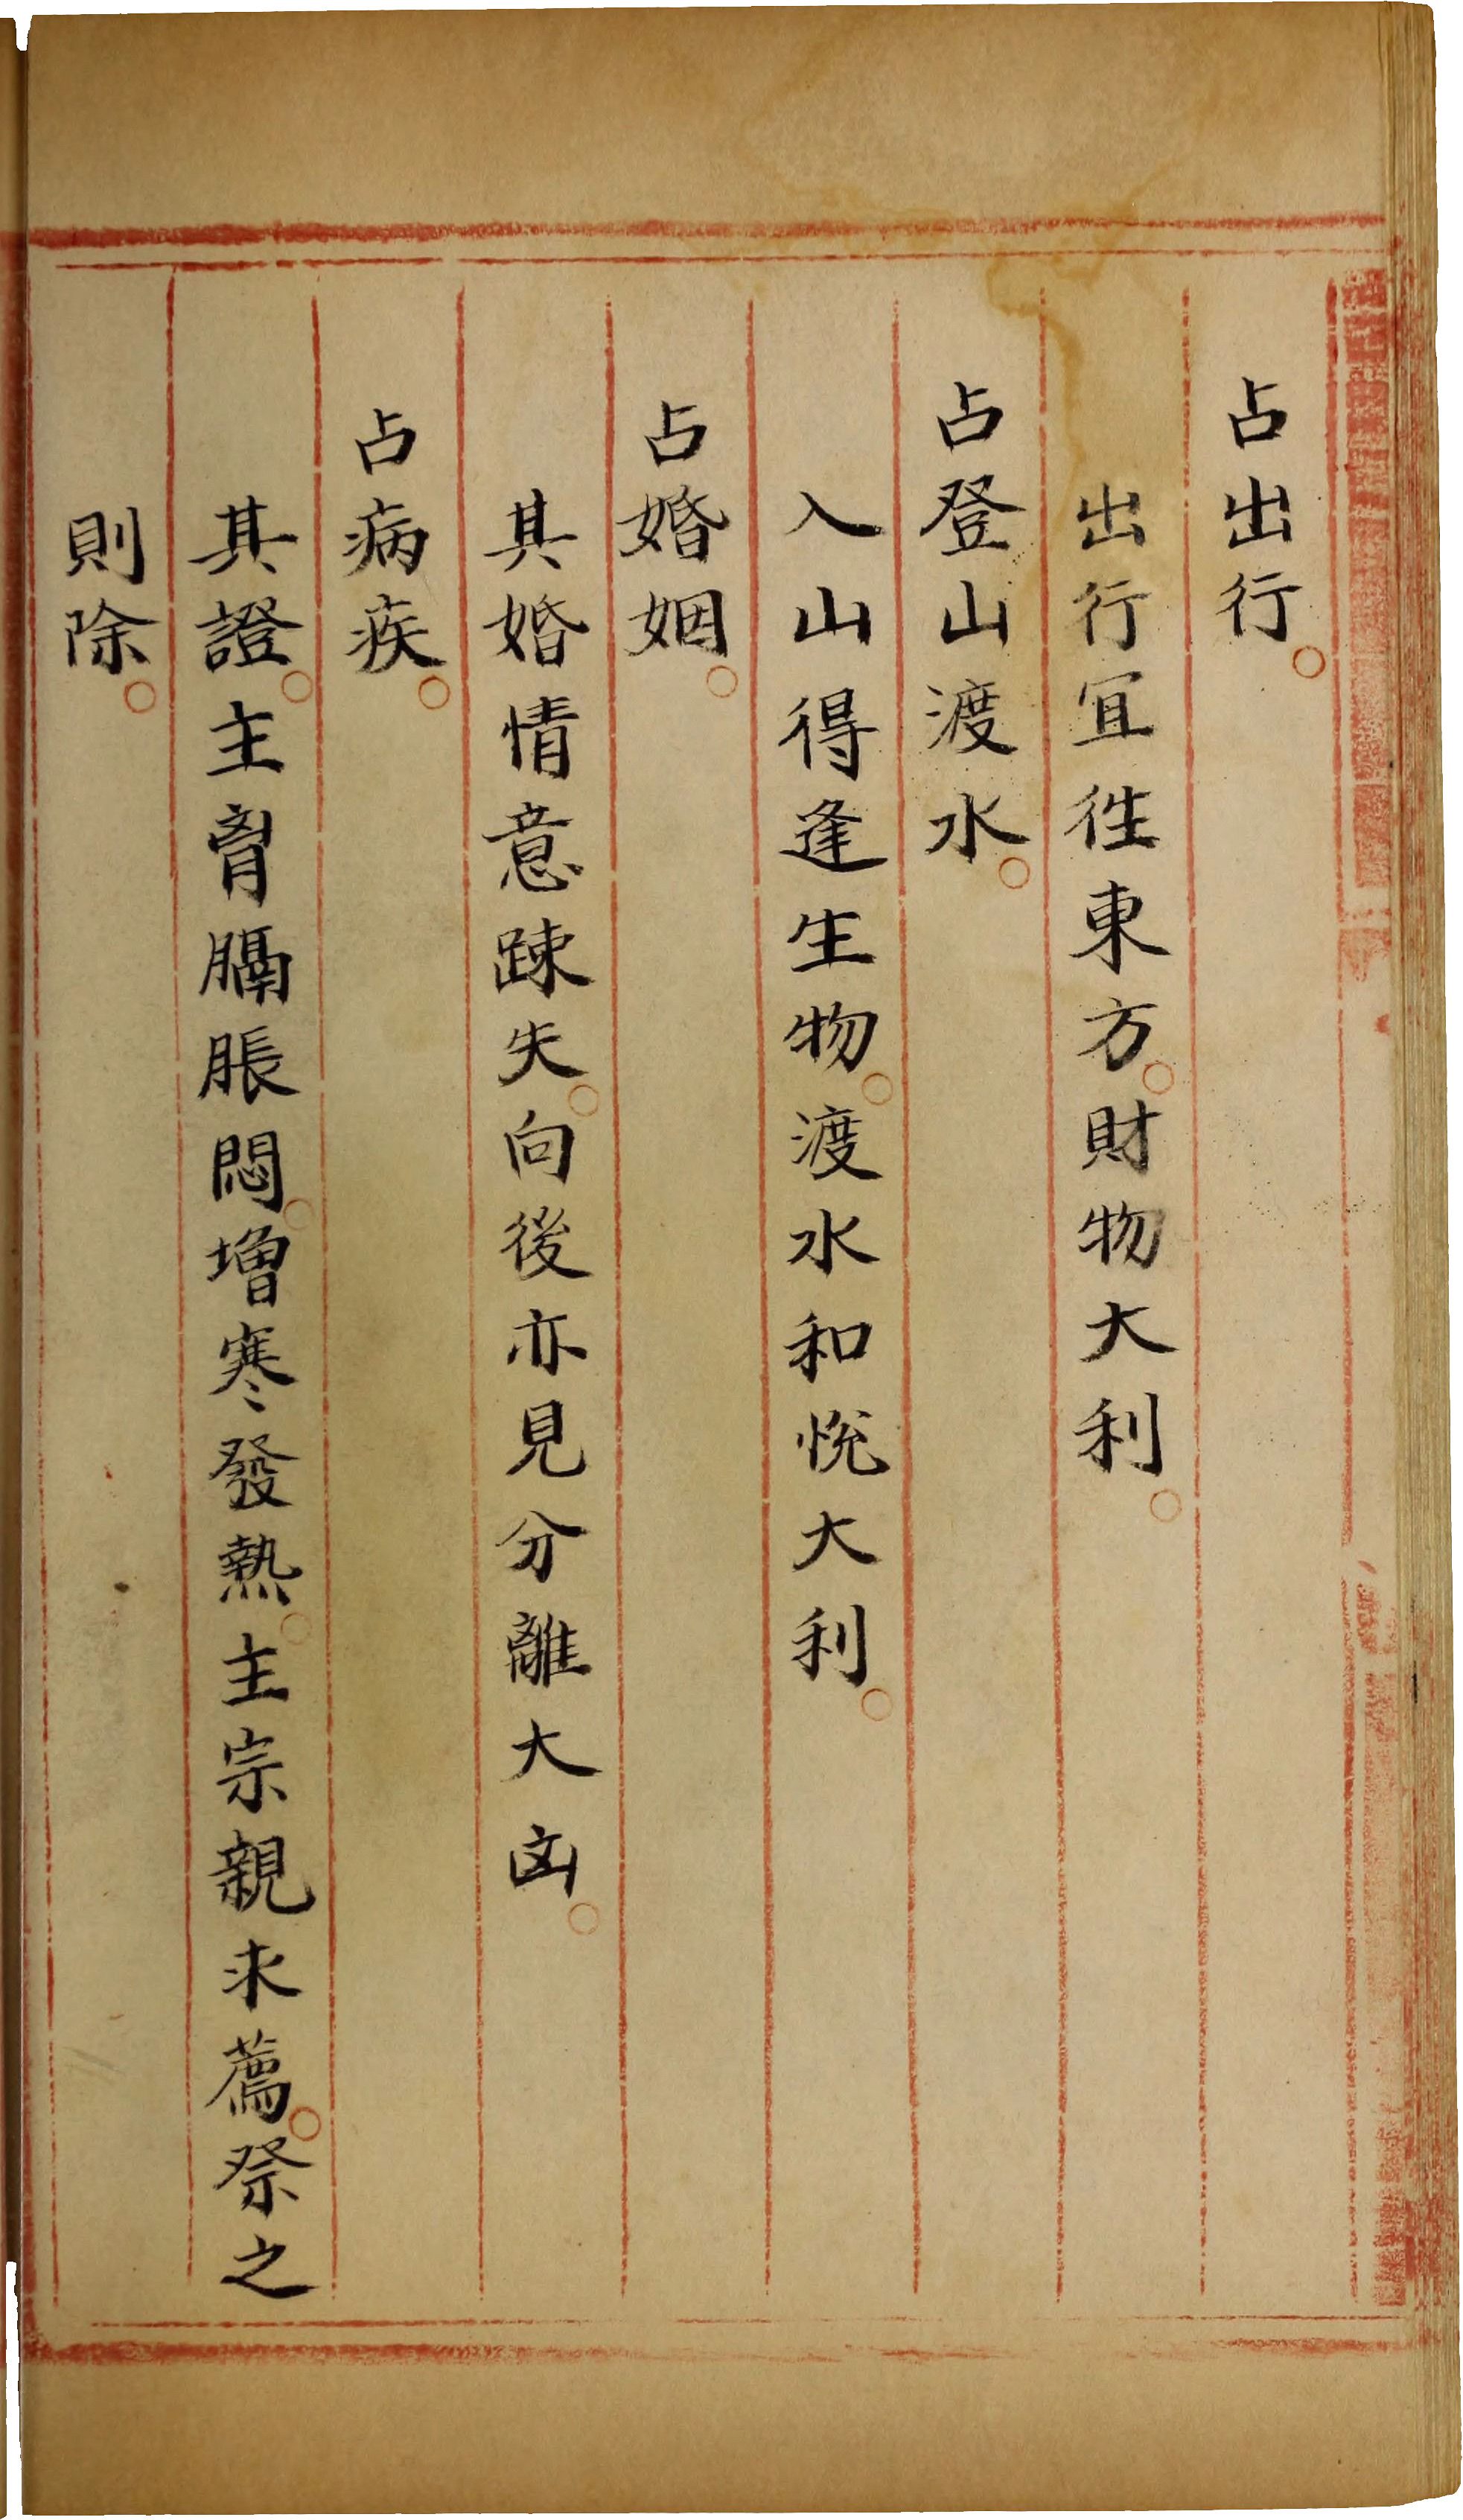 占出行。
出行宜徃東方。財物大利。
占登山渡水。
入山得逢生物。渡水和悅大利。
占婚姻。
其婚情意踈失。向後亦見分離大凶。
占病疾。
其證。主胷膈脹悶。增寒發熱。主宗親求薦。祭之
則除。